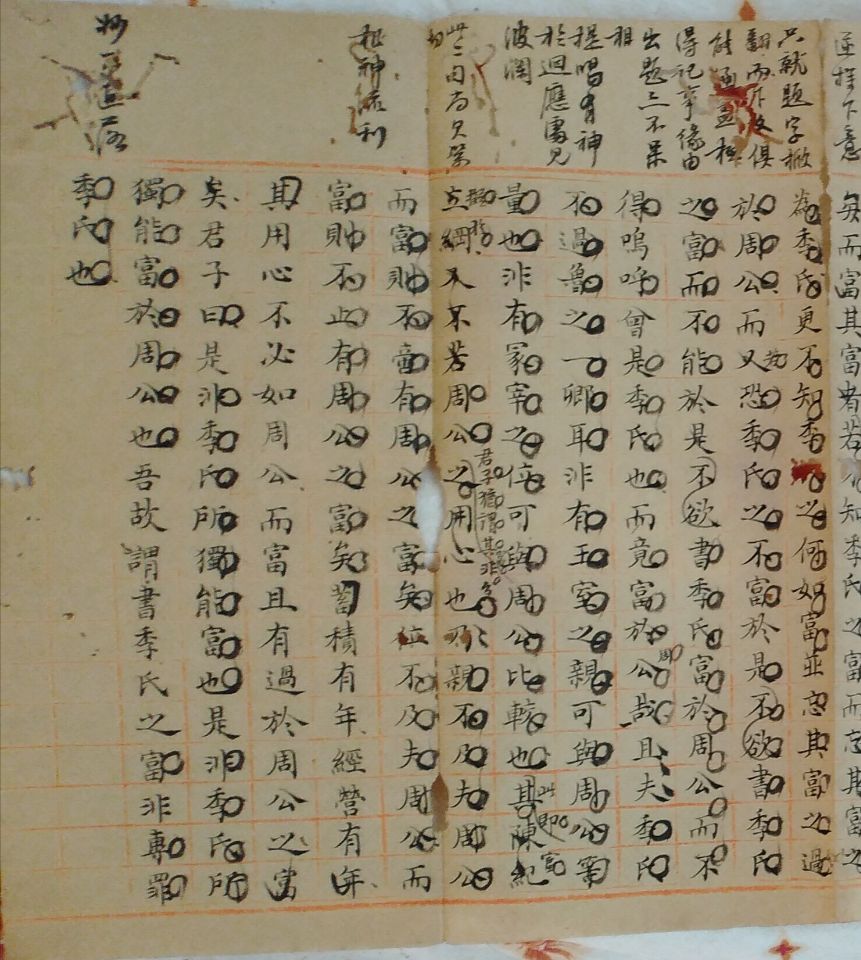 逆探下意
只就題字掀
得記事緣由
出題三不呆
提唱有神
於迴應處見
波瀾
此二句尚欠
神流利
矣而富其富者若不知季氏之富而忘其富之
為季氏更不知季氏之何如富並忘其富之過
於周公而又恐季氏之不富於是不欲書季氏
之富而不能於是不欲書季氏富於周公而不
得嗚呼曾是季氏也而竟富於周公哉且夫季氏
不過魯之一卿耳非有王室之親可與周公等
量也非有冢宰之位可與周公比較也其陳紀
此即富
君子猶謂其非
立綱又不若周公之用心也乃親不及夫周公
而富則不啻有周公之富矣位不及夫周公而
富則不止有周公之富矣蓄積有年經營有年
其用心不必如周公而富且有過於周公之富
矣君子曰是非季氏所獨能富也是非季氏所
獨能富於周公也吾故謂書季氏之富非專罪
季氏也